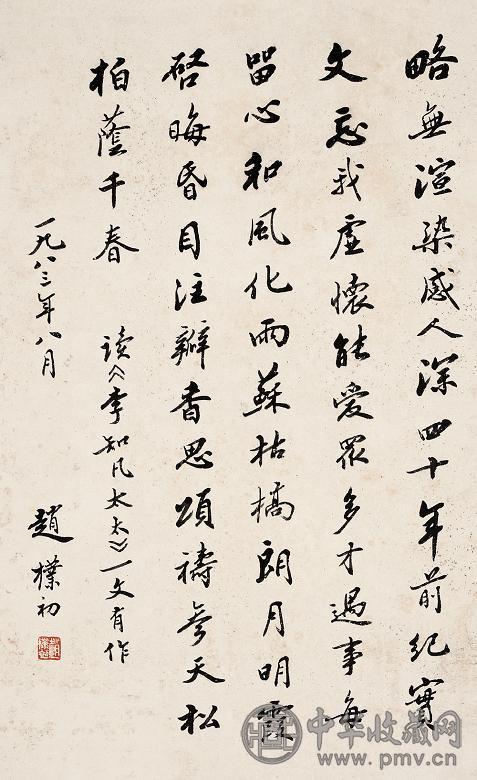 略無渲染感人深四十年前纪實
文忘我虚懷能爱眾多才遇事每
留心和風化雨蘇枯槁朗月明霞
啓晦昏目注瓣香思頌禱参天松
柏蔭千春 读《李知凡太太》一文有作
一九八三年八月
趙樸初
中华收藏网
www.pmv.cn